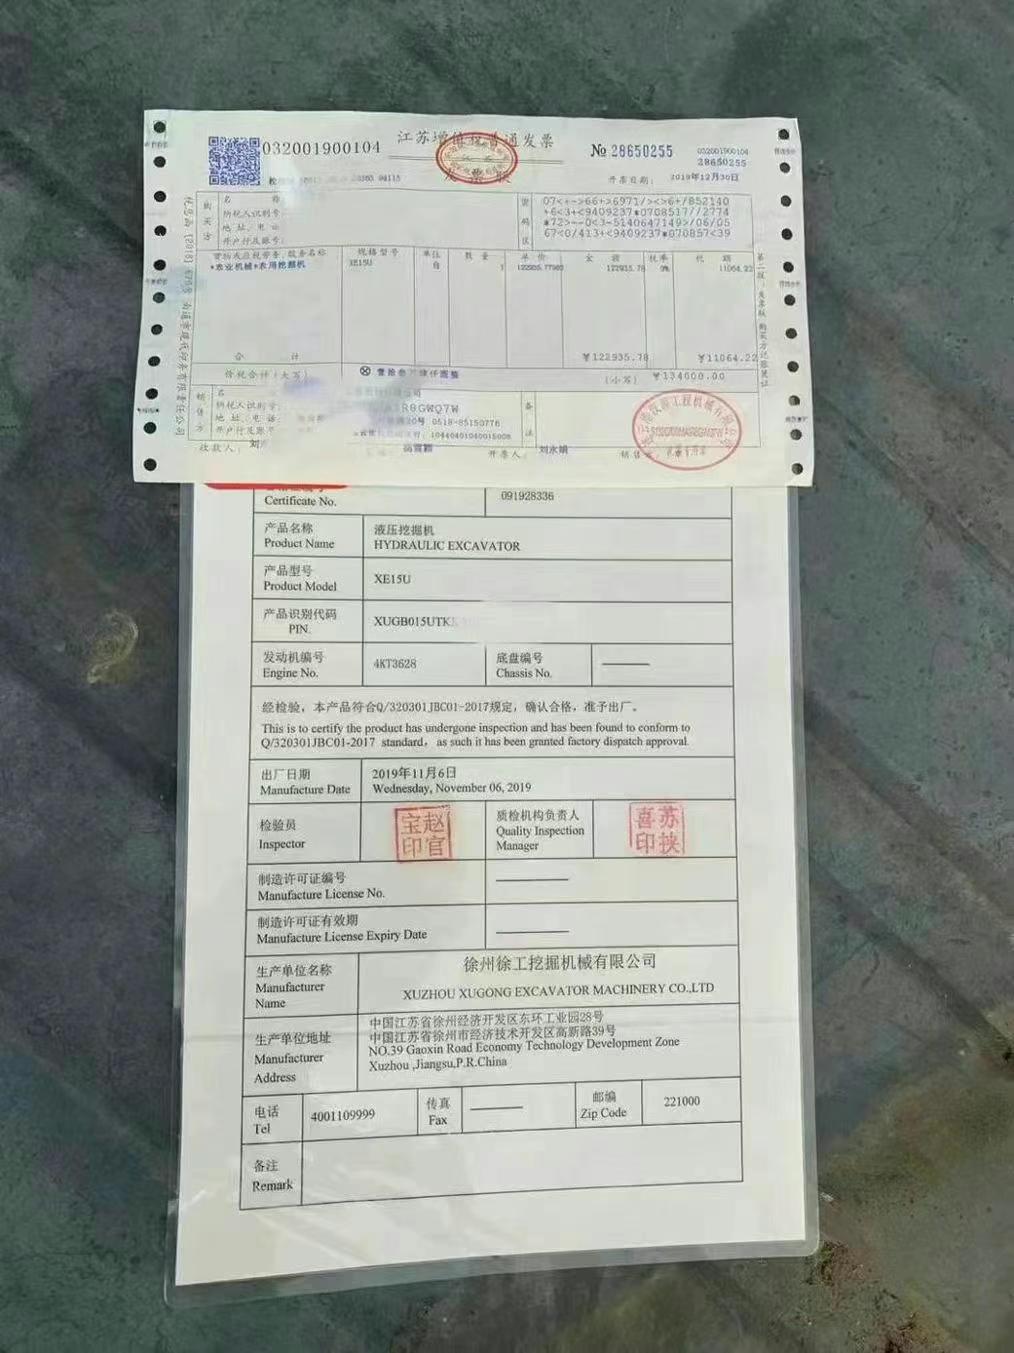 江苏增值税普通发票
032001900104
№ 28650255
032001900104
28650255
开票日期： 2019年12月30日
购买方
名 称：
纳税人识别号：
地 址、电 话：
开户行及账号：
密码区
07<+->66+>6971/><>6+/852140
+6<3+<9409237*0708517//2774
*72>--0<3-5140647149>/06/05
67<0/413+<9409237*070857<39
货物或应税劳务、服务名称
规格型号
单位
数 量
单 价
金 额
税率
税 额
*农业机械*农用挖掘机
XE15U
台
1
122935.77982
122935.78
9%
11064.22
合 计
￥122935.78
￥11064.22
价税合计（大写）
（小写）
￥134000.00
销售方
名
纳税人识别号:
地 址、电话
开户行及账号
0518-85150776
10440401040015008
备注
收款人：
高雪颖
开票人：
刘永娟
第二联：发票联 购买方记账凭证
Certificate No.
091928336
产品名称
Product Name
液压挖掘机
HYDRAULIC EXCAVATOR
产品型号
Product Model
XE15U
产品识别代码
PIN.
XUGB015UTK
发动机编号
Engine No.
4KT3628
底盘编号
Chassis No.
经检验，本产品符合Q/320301JBC01-2017规定，确认合格，准予出厂。
This is to certify the product has undergone inspection and has been found to conform to
Q/320301JBC01-2017 standard, as such it has been granted factory dispatch approval.
出厂日期
Manufacture Date
2019年11月6日
Wednesday, November 06, 2019
检验员
Inspector
赵官宝印
质检机构负责人
Quality Inspection
Manager
苏挟喜印
制造许可证编号
Manufacture License No.
制造许可证有效期
Manufacture License Expiry Date
生产单位名称
Manufacturer
Name
徐州徐工挖掘机械有限公司
XUZHOU XUGONG EXCAVATOR MACHINERY CO.,LTD
生产单位地址
Manufacturer
Address
中国江苏省徐州经济开发区东环工业园28号
中国江苏省徐州市经济技术开发区高新路39号
NO.39 Gaoxin Road Economy Technology Development Zone
Xuzhou ,Jiangsu,P.R.China
电话
Tel
4001109999
传真
Fax
邮编
Zip Code
221000
备注
Remark